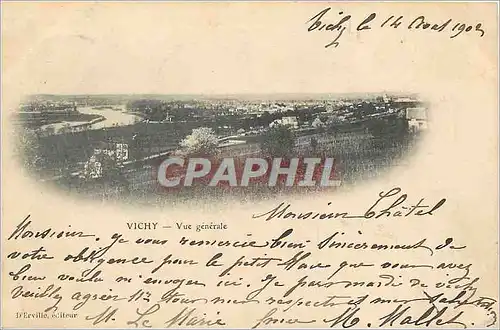 Vichy le 14 Août 1902
CPARAMA.com
VICHY — Vue générale
Monsieur Châtel
Monsieur. je vous remercie bien sincèrement de
votre obligeance pour le petit que vous avez
bien voulu m'envoyer ici. Je pars mardi de vichy
Veuillez agréer tous mes respects et mes
D'Erville, éditeur
M. Le Marie M. Mallet.